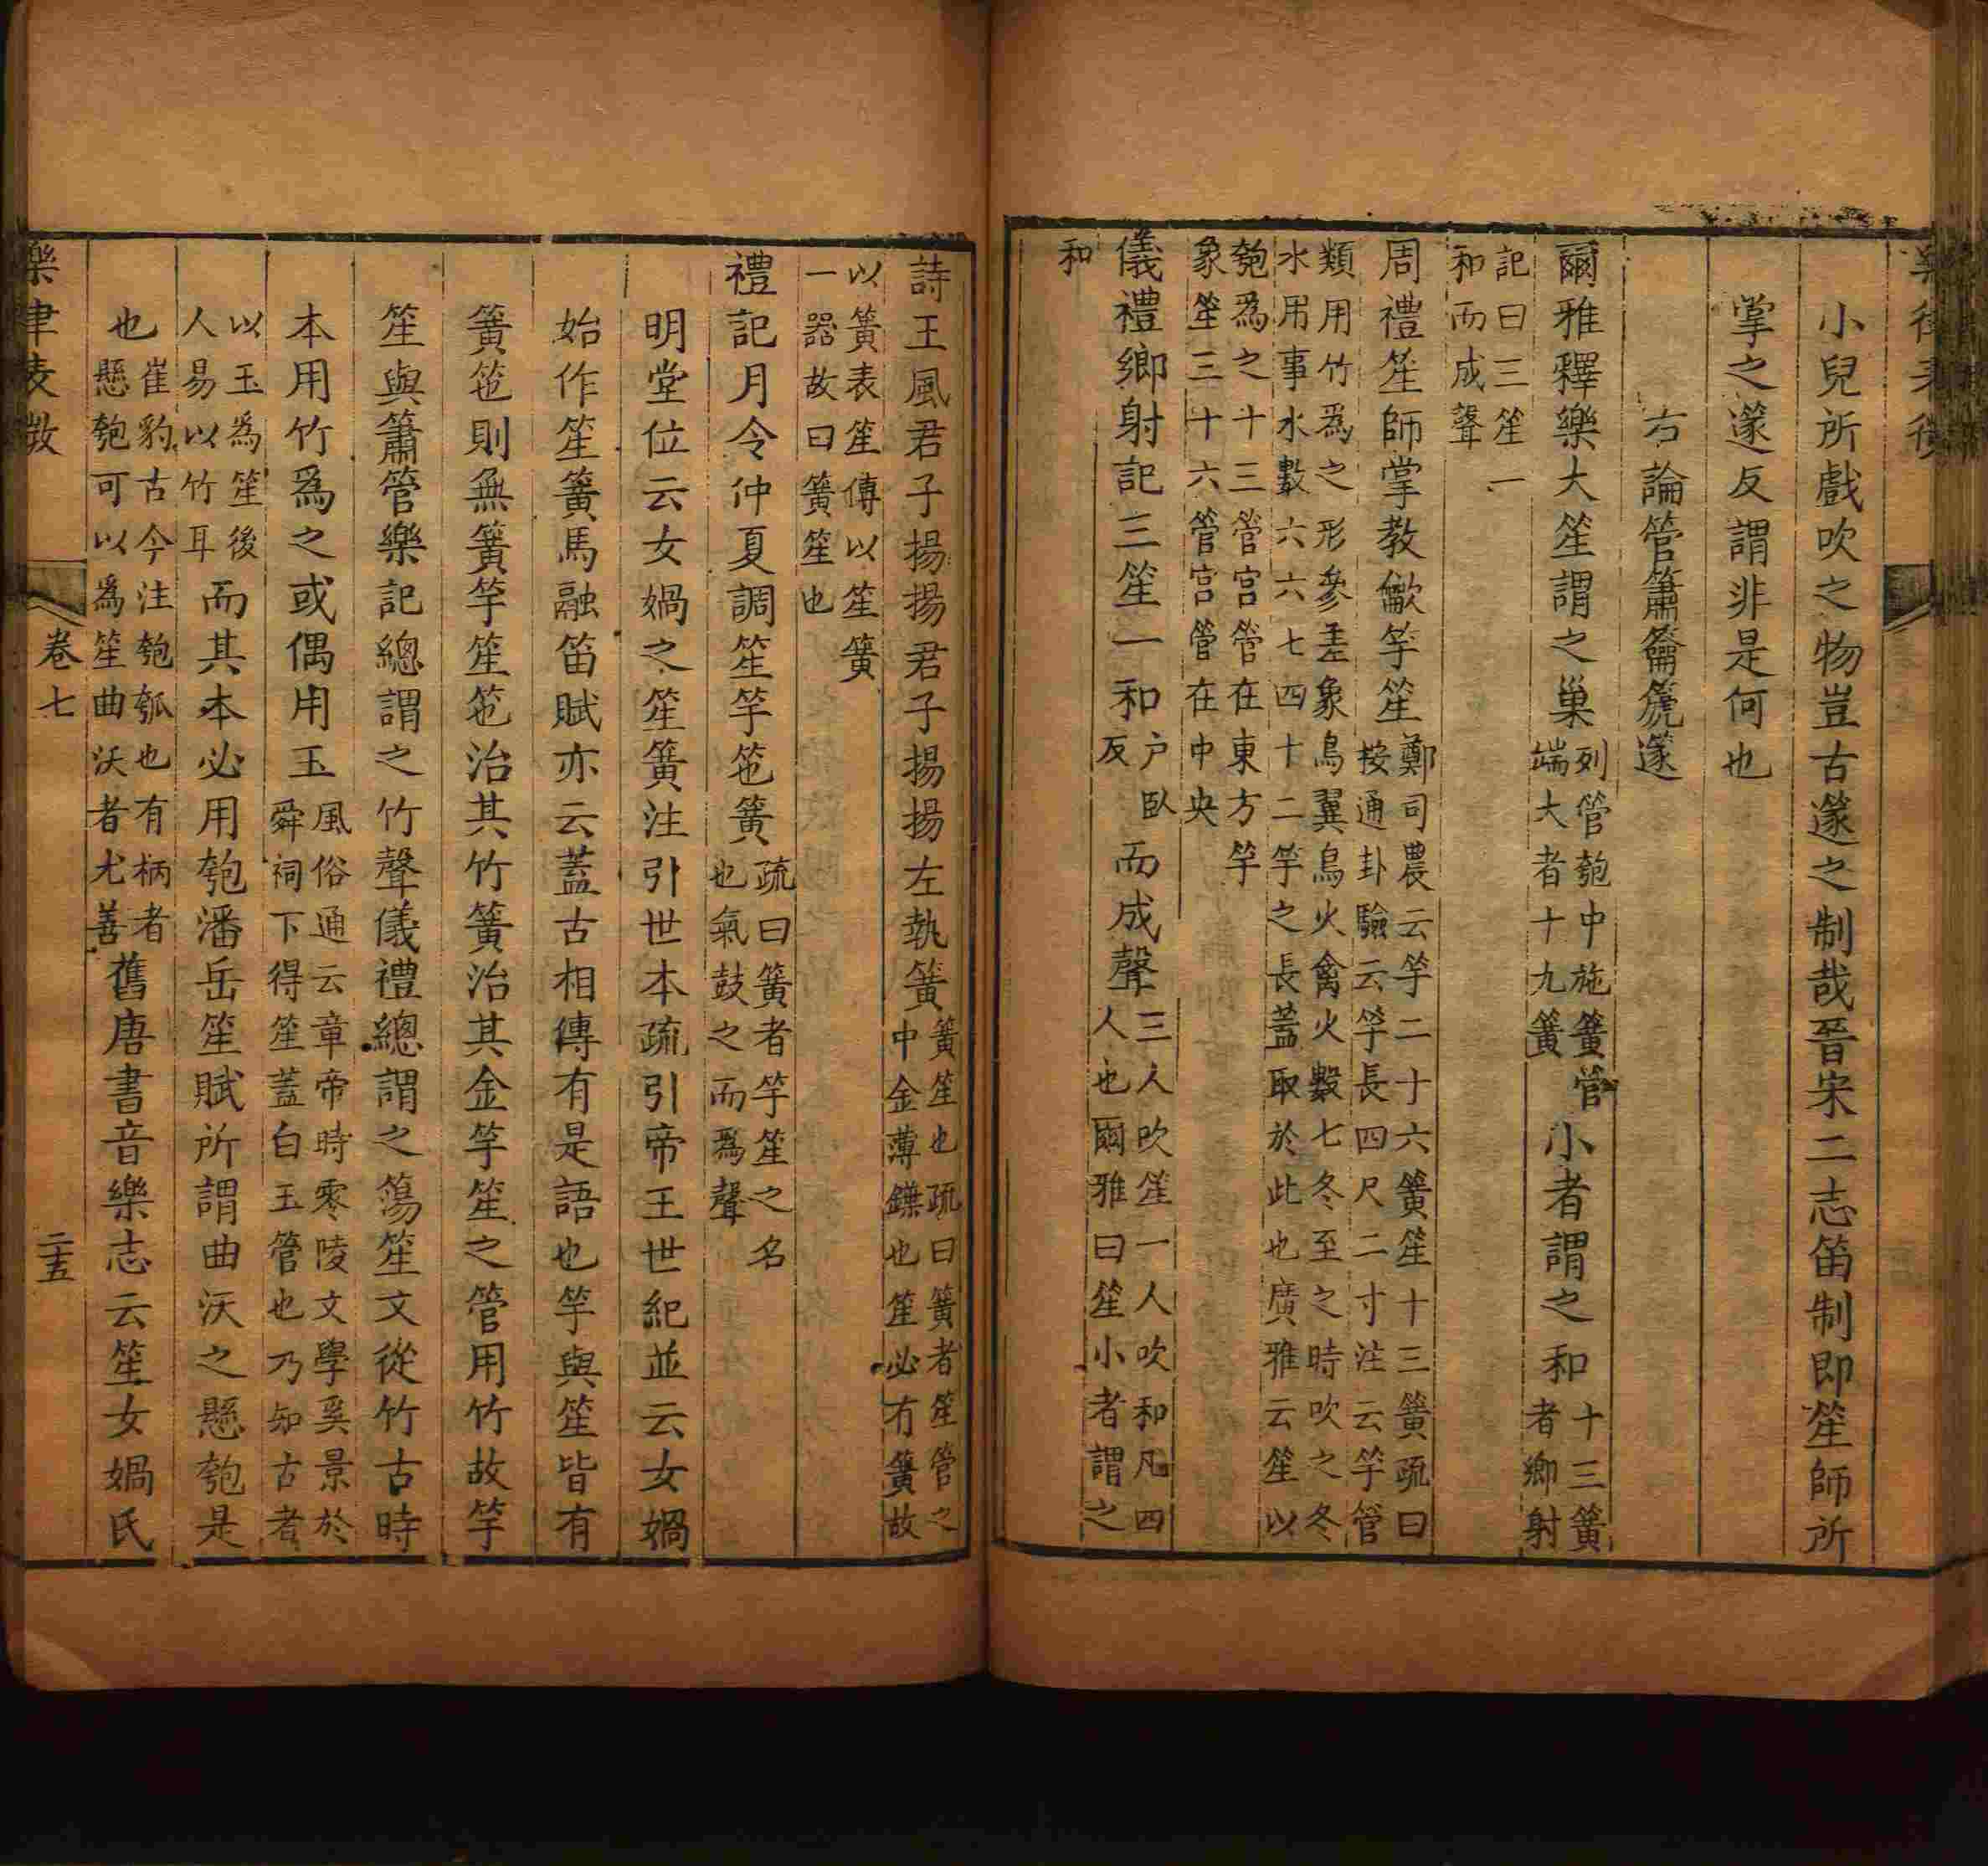 小兒所戲吹之物豈古篴之制哉晉宋二志笛制即笙師所
掌之篴反謂非是何也
右論管簫籥箎篴
爾雅釋樂大笙謂之巢列管匏中施簧管端大者十九簧小者謂之和十三簧者鄉射
記曰三笙一和而成聲
周禮笙師掌教龡竽笙鄭司農云竽二十六簧笙十三簧疏曰按通卦驗云竽長四尺二寸注云竽管
類用竹爲之形參差象鳥翼鳥火禽火數七冬至之時吹之冬水用事水數六六七四十二竽之長葢取於此也廣雅云笙以
匏爲之十三管宮管在東方竽象笙三十六管宮管在中央
儀禮鄉射記三笙一和户臥反而成聲三人吹笙一人吹和凡四人也爾雅曰笙小者謂之
和
詩王風君子揚揚君子揚揚左執簧簧笙也疏曰簧者笙管之中金薄鐷也笙必有簧故
以簧表笙傳以笙簧一器故曰簧笙也
禮記月令仲夏調笙竽笹簧疏曰簧者竽笙之名也氣鼓之而爲聲
明堂位云女媧之笙簧注引世本疏引帝王世紀並云女媧
始作笙簧馬融笛賦亦云葢古相傳有是語也竽與笙皆有
簧笹則無簧竽笙笹治其竹簧治其金竽笙之管用竹故竽
笙與簫管樂記總謂之竹聲儀禮總謂之簜笙文從竹古時
本用竹爲之或偶用玉風俗通云章帝時零陵文學奚景於舜祠下得笙葢白玉管也乃知古者
以玉爲笙後人易以竹耳而其本必用匏潘岳笙賦所謂曲沃之懸匏是
也崔豹古今注匏瓠也有柄者懸匏可以爲笙曲沃者尤善舊唐書音樂志云笙女媧氏
樂律表微
卷七
二十五